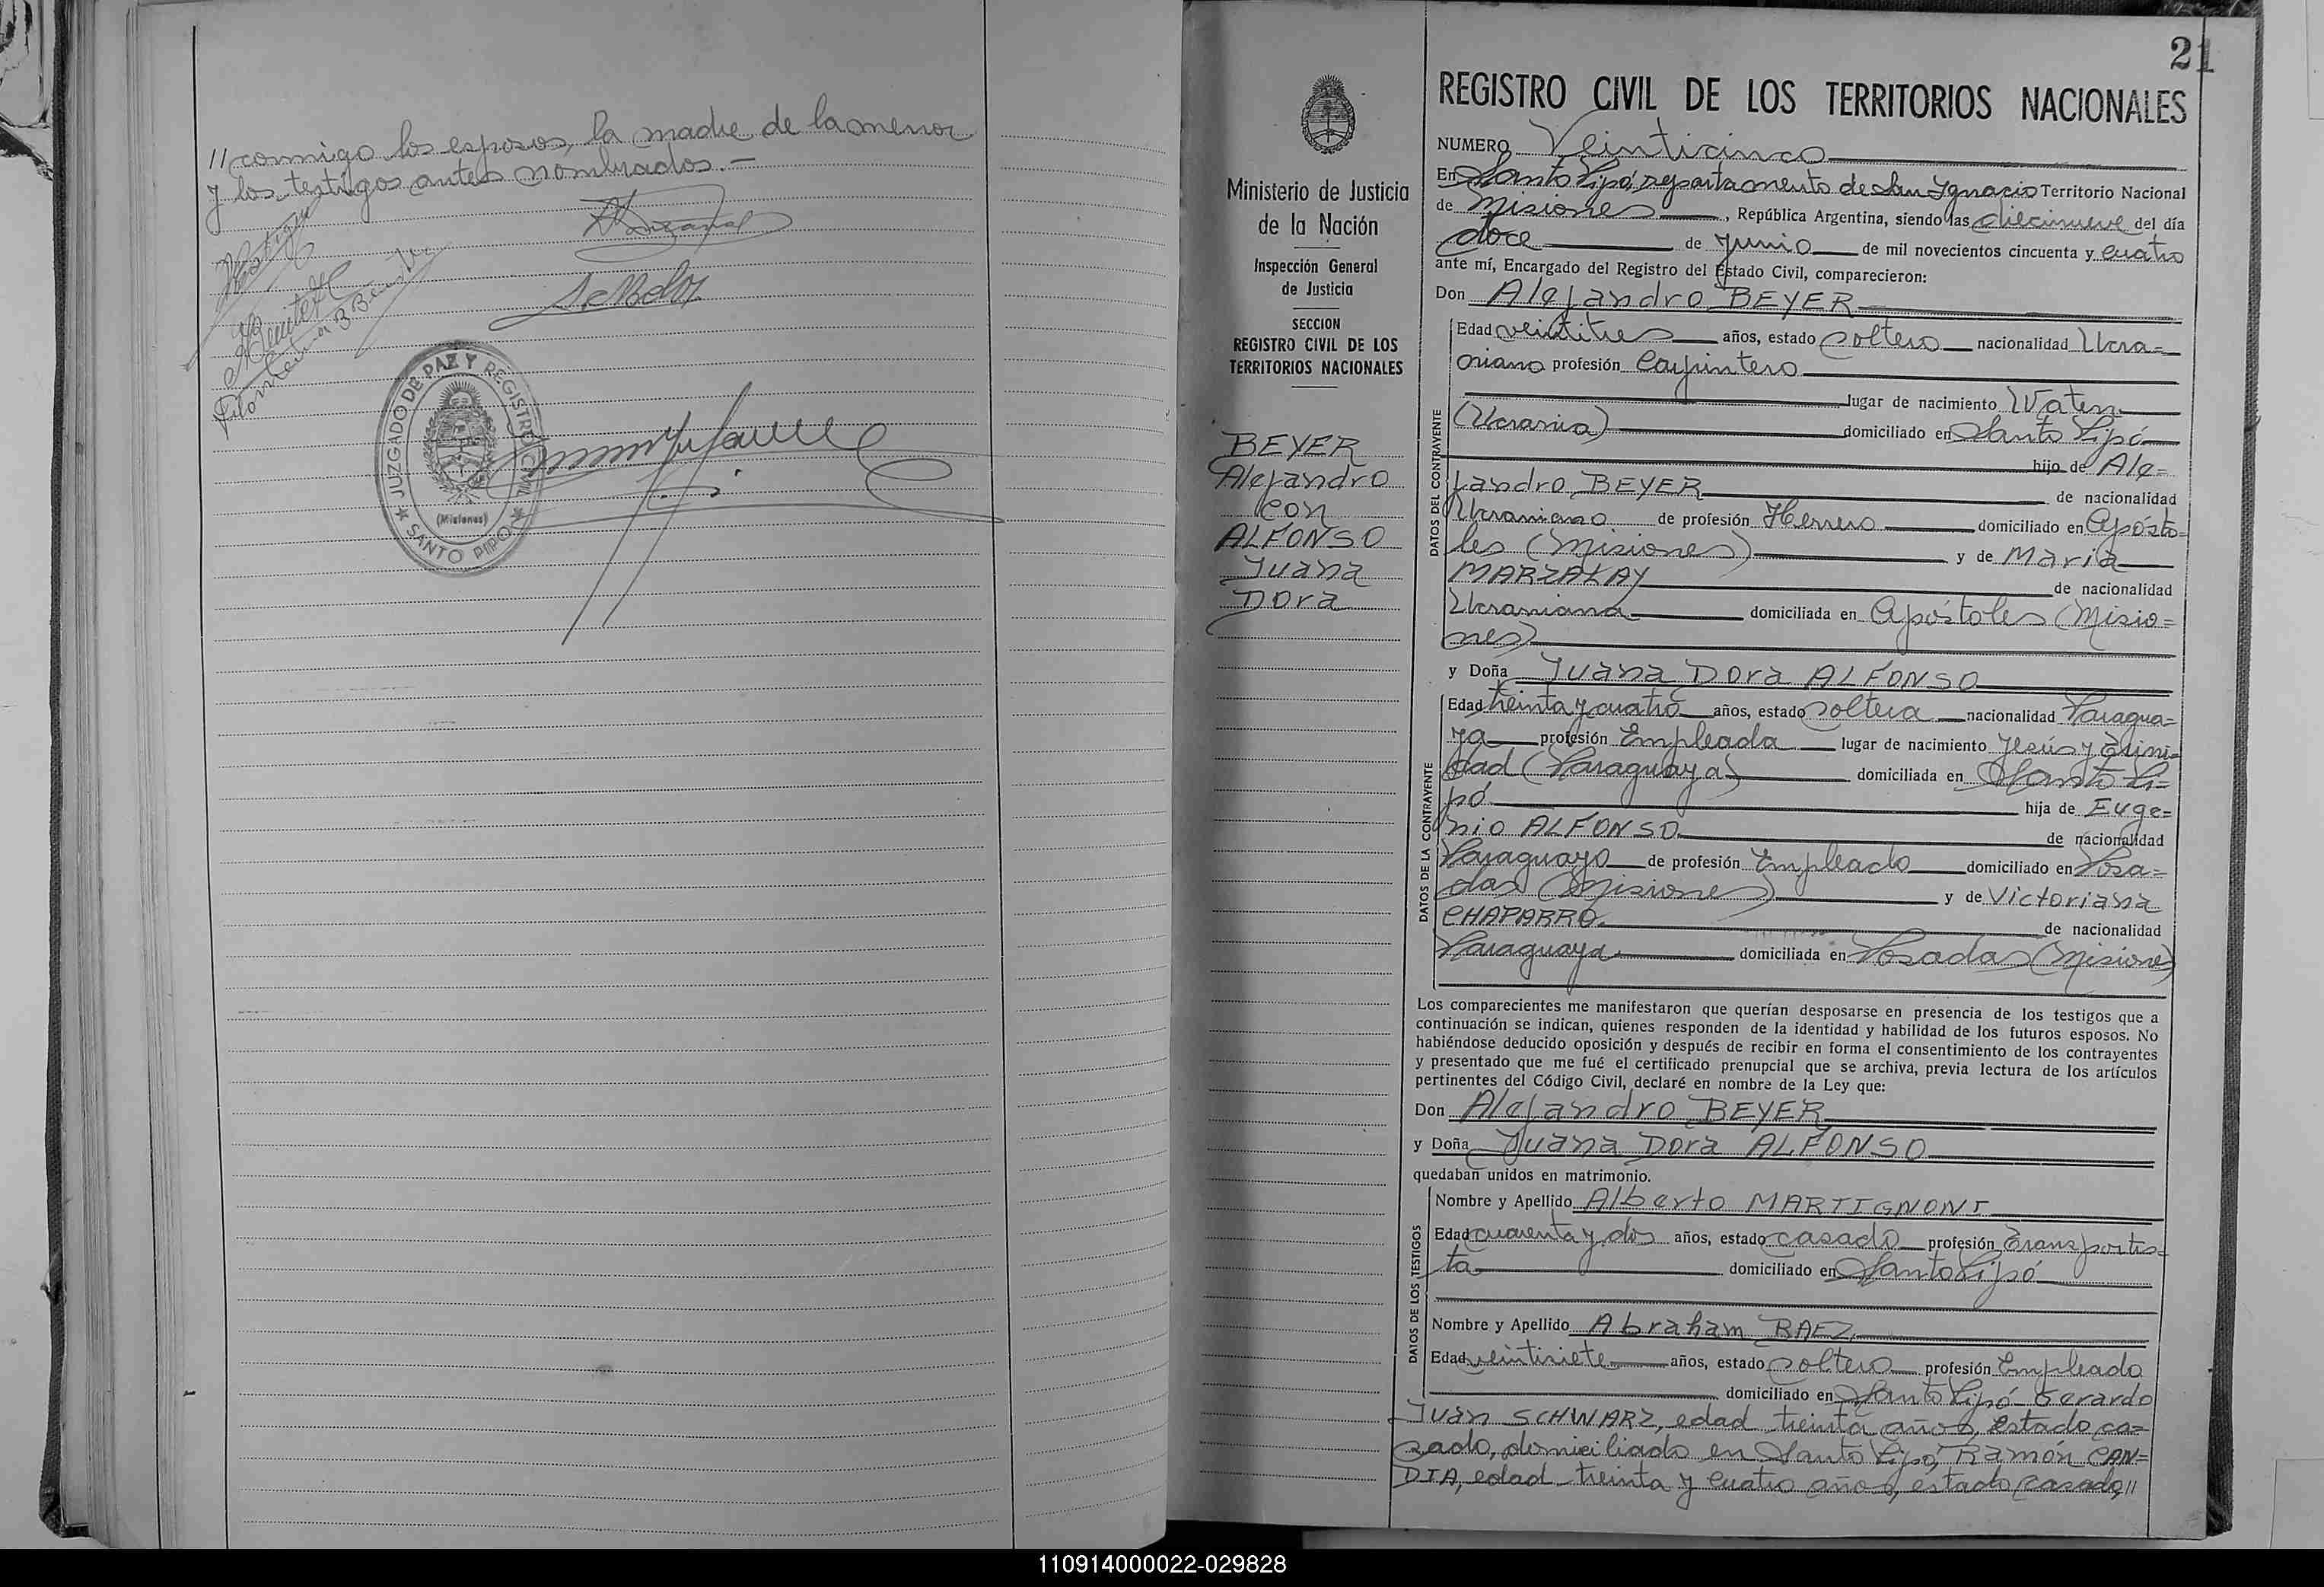 // conmigo los esposos, la madre de la menor
y los testigos antes nombrados.-
JUZGADO DE PAZ Y REGISTRO CIVIL
(Misiones)
★ SANTO PIPO ★
21
Ministerio de Justicia
de la Nación
Inspección General
de Justicia
SECCION
REGISTRO CIVIL DE LOS
TERRITORIOS NACIONALES
BEYER
Alejandro
con
ALFONSO
Juana
Dora
REGISTRO CIVIL DE LOS TERRITORIOS NACIONALES
NUMERO Veinticinco
En Santo Pipó, Departamento de San Ignacio Territorio Nacional
de Misiones, República Argentina, siendo las diecinueve del día
doce de Junio de mil novecientos cincuenta y cuatro
ante mí, Encargado del Registro del Estado Civil, comparecieron:
Don Alejandro BEYER
DATOS DEL CONTRAYENTE
Edad veintitres años, estado soltero nacionalidad Ucra=
niano profesión Carpintero
lugar de nacimiento
(Ucrania) domiciliado en Santo Pipó
hijo de Ale=
jandro BEYER de nacionalidad
Ucraniano de profesión Herrero domiciliado en Apósto=
les (Misiones) y de María
MARZAKAY de nacionalidad
Ucraniana domiciliada en Apóstoles (Misio=
nes)
y Doña Juana Dora ALFONSO
DATOS DE LA CONTRAYENTE
Edad treinta y cuatro años, estado soltera nacionalidad Paragua=
ya profesión Empleada lugar de nacimiento Jesús y Trini=
dad (Paraguaya) domiciliada en Santo Pi=
pó hija de Euge=
nio ALFONSO de nacionalidad
Paraguayo de profesión Empleado domiciliado en Posa=
das (Misiones) y de Victoriana
CHAPARRO de nacionalidad
Paraguaya domiciliada en Posadas (Misiones)
Los comparecientes me manifestaron que querían desposarse en presencia de los testigos que a
continuación se indican, quienes responden de la identidad y habilidad de los futuros esposos. No
habiéndose deducido oposición y después de recibir en forma el consentimiento de los contrayentes
y presentado que me fué el certificado prenupcial que se archiva, previa lectura de los artículos
pertinentes del Código Civil, declaré en nombre de la Ley que:
Don Alejandro BEYER
y Doña Juana Dora ALFONSO
quedaban unidos en matrimonio.
DATOS DE LOS TESTIGOS
Nombre y Apellido Alberto MARTIGNONI
Edad cuarenta y dos años, estado casado profesión Transportis=
ta domiciliado en Santo Pipó
Nombre y Apellido Abraham BAEZ
Edad veintisiete años, estado soltero profesión Empleado
domiciliado en Santo Pipó Gerardo
Juan SCHWARZ, edad treinta años, estado ca=
sado, domiciliado en Santo Pipó, Ramón CAN=
DIA, edad treinta y cuatro años, estado casado,//
110914000022-029828